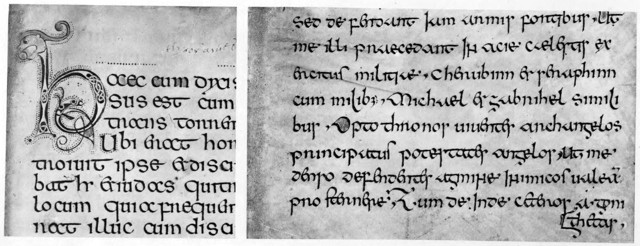 haec cum dixis
sus est cum
trans torren
Ubi erat hor
troiuit ipse & disci
bat & iudas qui tra
locum quia frequen
illuc cum disci
sed defendant iam armis fortibus. Ut
me illi praecedant in acie caelestis ex
ercitus militiae. Cherubinn et seraphinn
cum milibus, Michael et gabrihel simili
bus. Opto thronos uiuentes archangelos
principatus potestates angelos. Ut me
denso defendentes agmine inimicos ualeā
pro sternere. Tum de inde ceteros agoni
thetas.